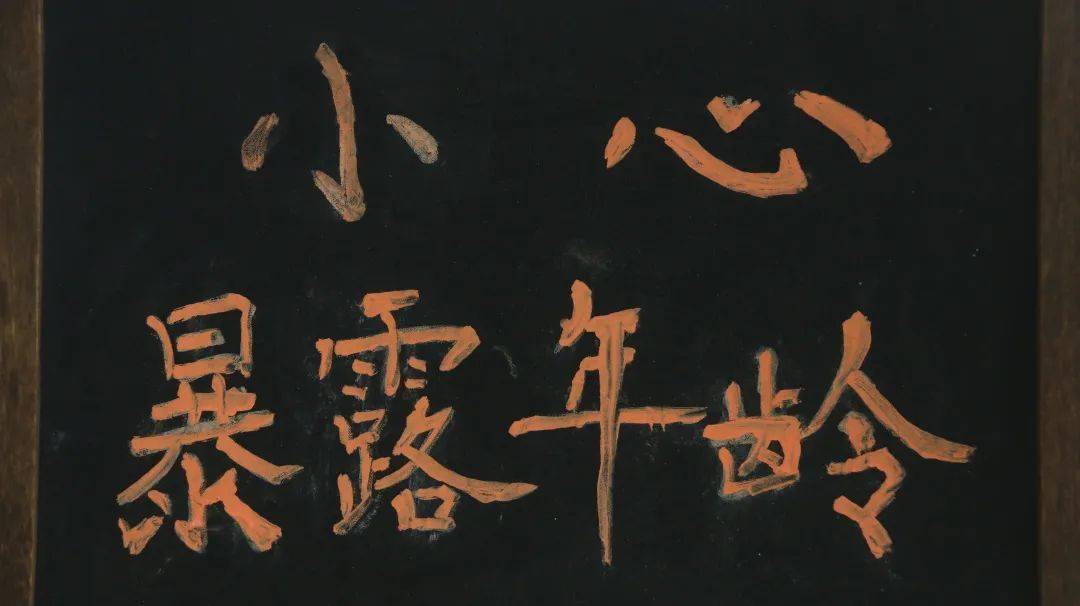 小心
暴露年龄